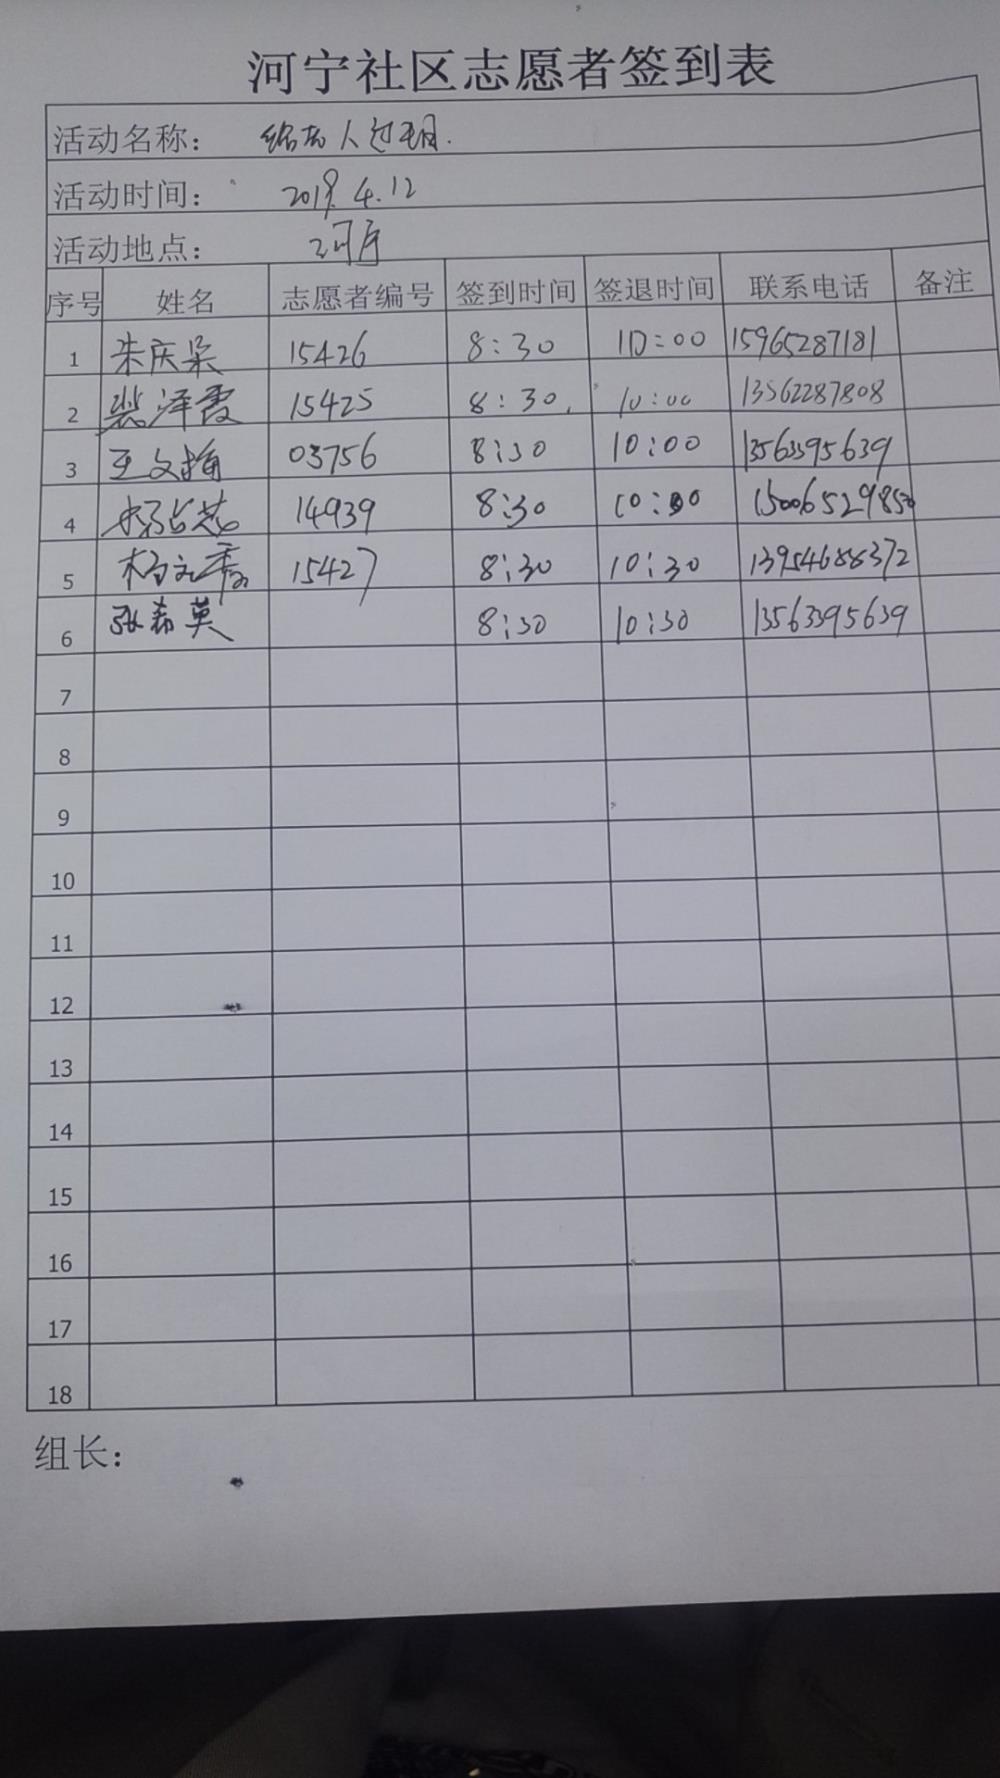 河宁社区志愿者签到表
活动名称： 给老人过生日.
活动时间： 2019.4.12
活动地点：
序号 姓名 志愿者编号 签到时间 签退时间 联系电话 备注
1 朱庆荣 15426 8:30 10:00 15965287181
2 裴泽霞 15425 8:30. 10:00 13562287808
3 王文楠 03756 8:30 10:00 13563395639
4 14939 8:30 10:00 15006529850
5 杨文秀 15427 8:30 10:30 13954688372
6 张希英 8:30 10:30 13563395639
7
8
9
10
11
12
13
14
15
16
17
18
组长：